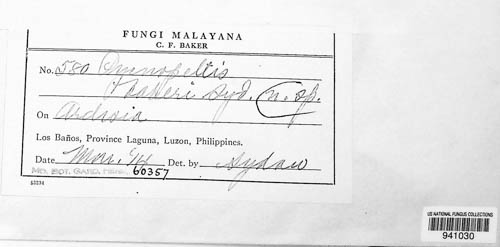 FUNGI MALAYANA
C. F. BAKER
No. 580
Bakeri Syd. n. sp.
On Ardisia
Los Baños, Province Laguna, Luzon, Philippines.
Date Det. by Sydow
MO. BOT. GARD. HERB. 60357
US NATIONAL FUNGUS COLLECTIONS
941030